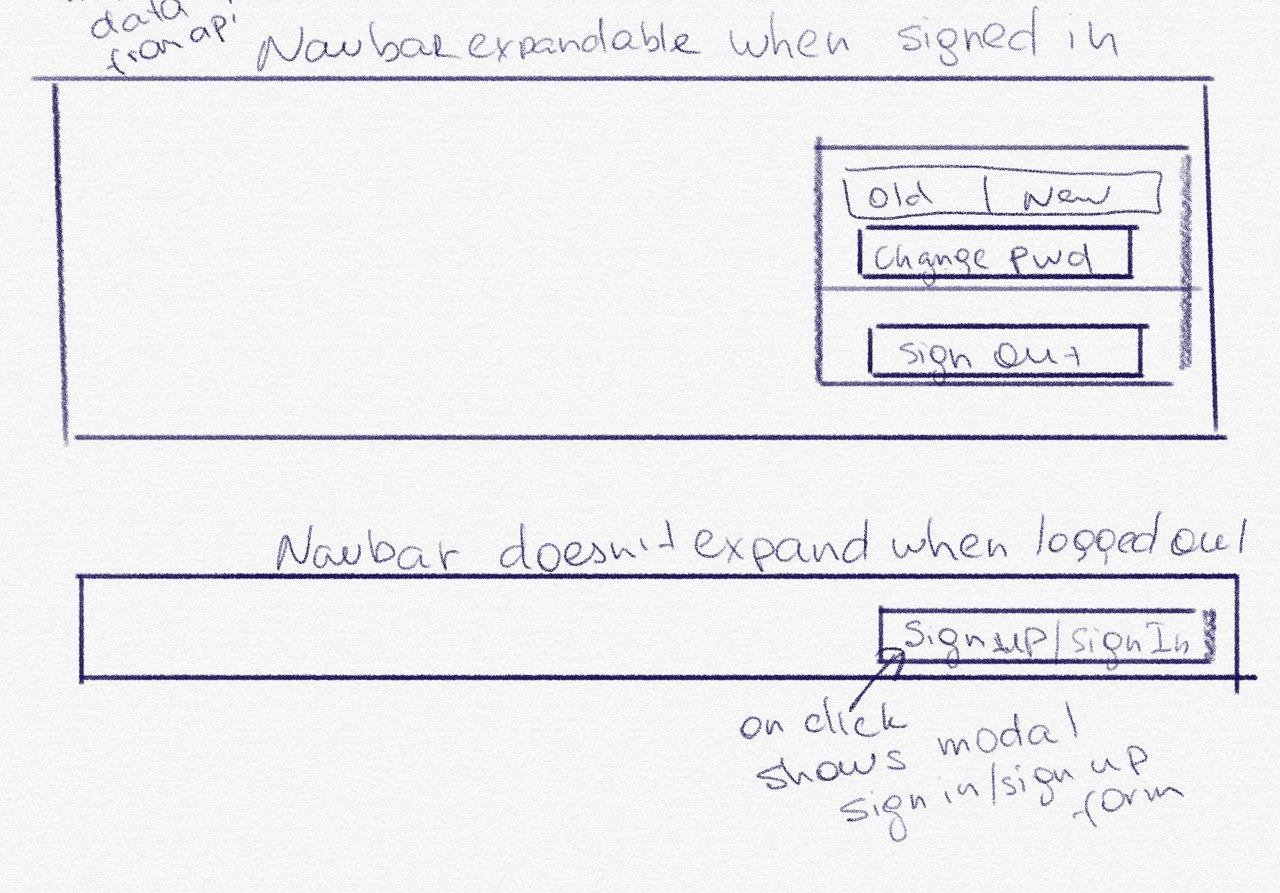 data
from api
Navbar expandable when signed in
Old | New
Change pwd
Sign Out
Navbar doesn't expand when logged out
Sign up/Sign In
on click
shows modal
sign in/sign up
form